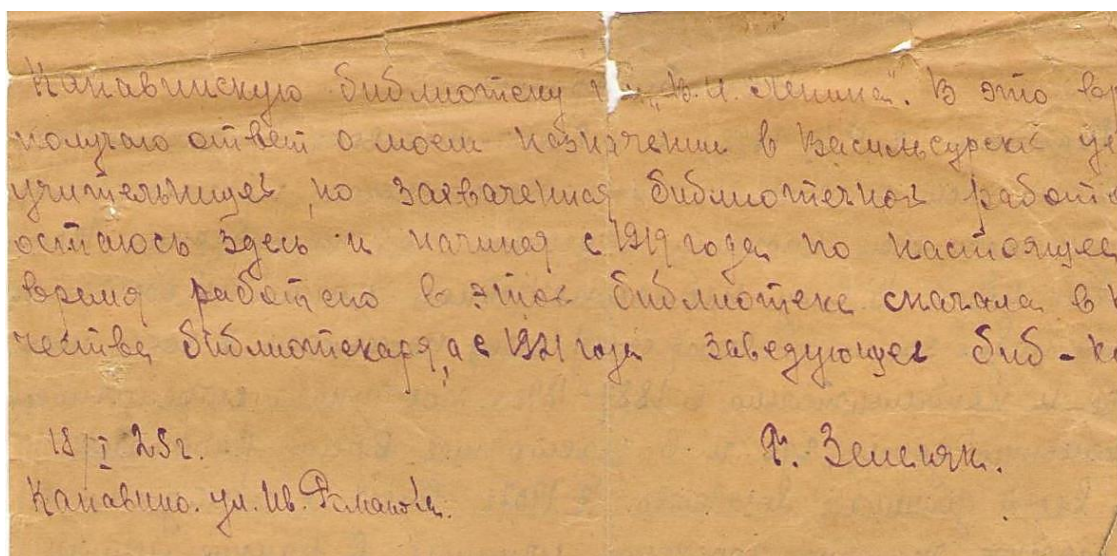 Канавинскую библиотеку им. „В. И. Ленина". В это вр
получаю ответ о моем назначении в Васильсурский уе
учительницей, но захваченная библиотечной работо
остаюсь здесь и начиная с 1919 года по настоящее
время работаю в этой библиотеке сначала в к
честве библиотекаря, а с 1921 года заведующей биб-ко
18/I 25 г.
Ф. Зеленяк.
Канавино. ул. Ив. Романова.